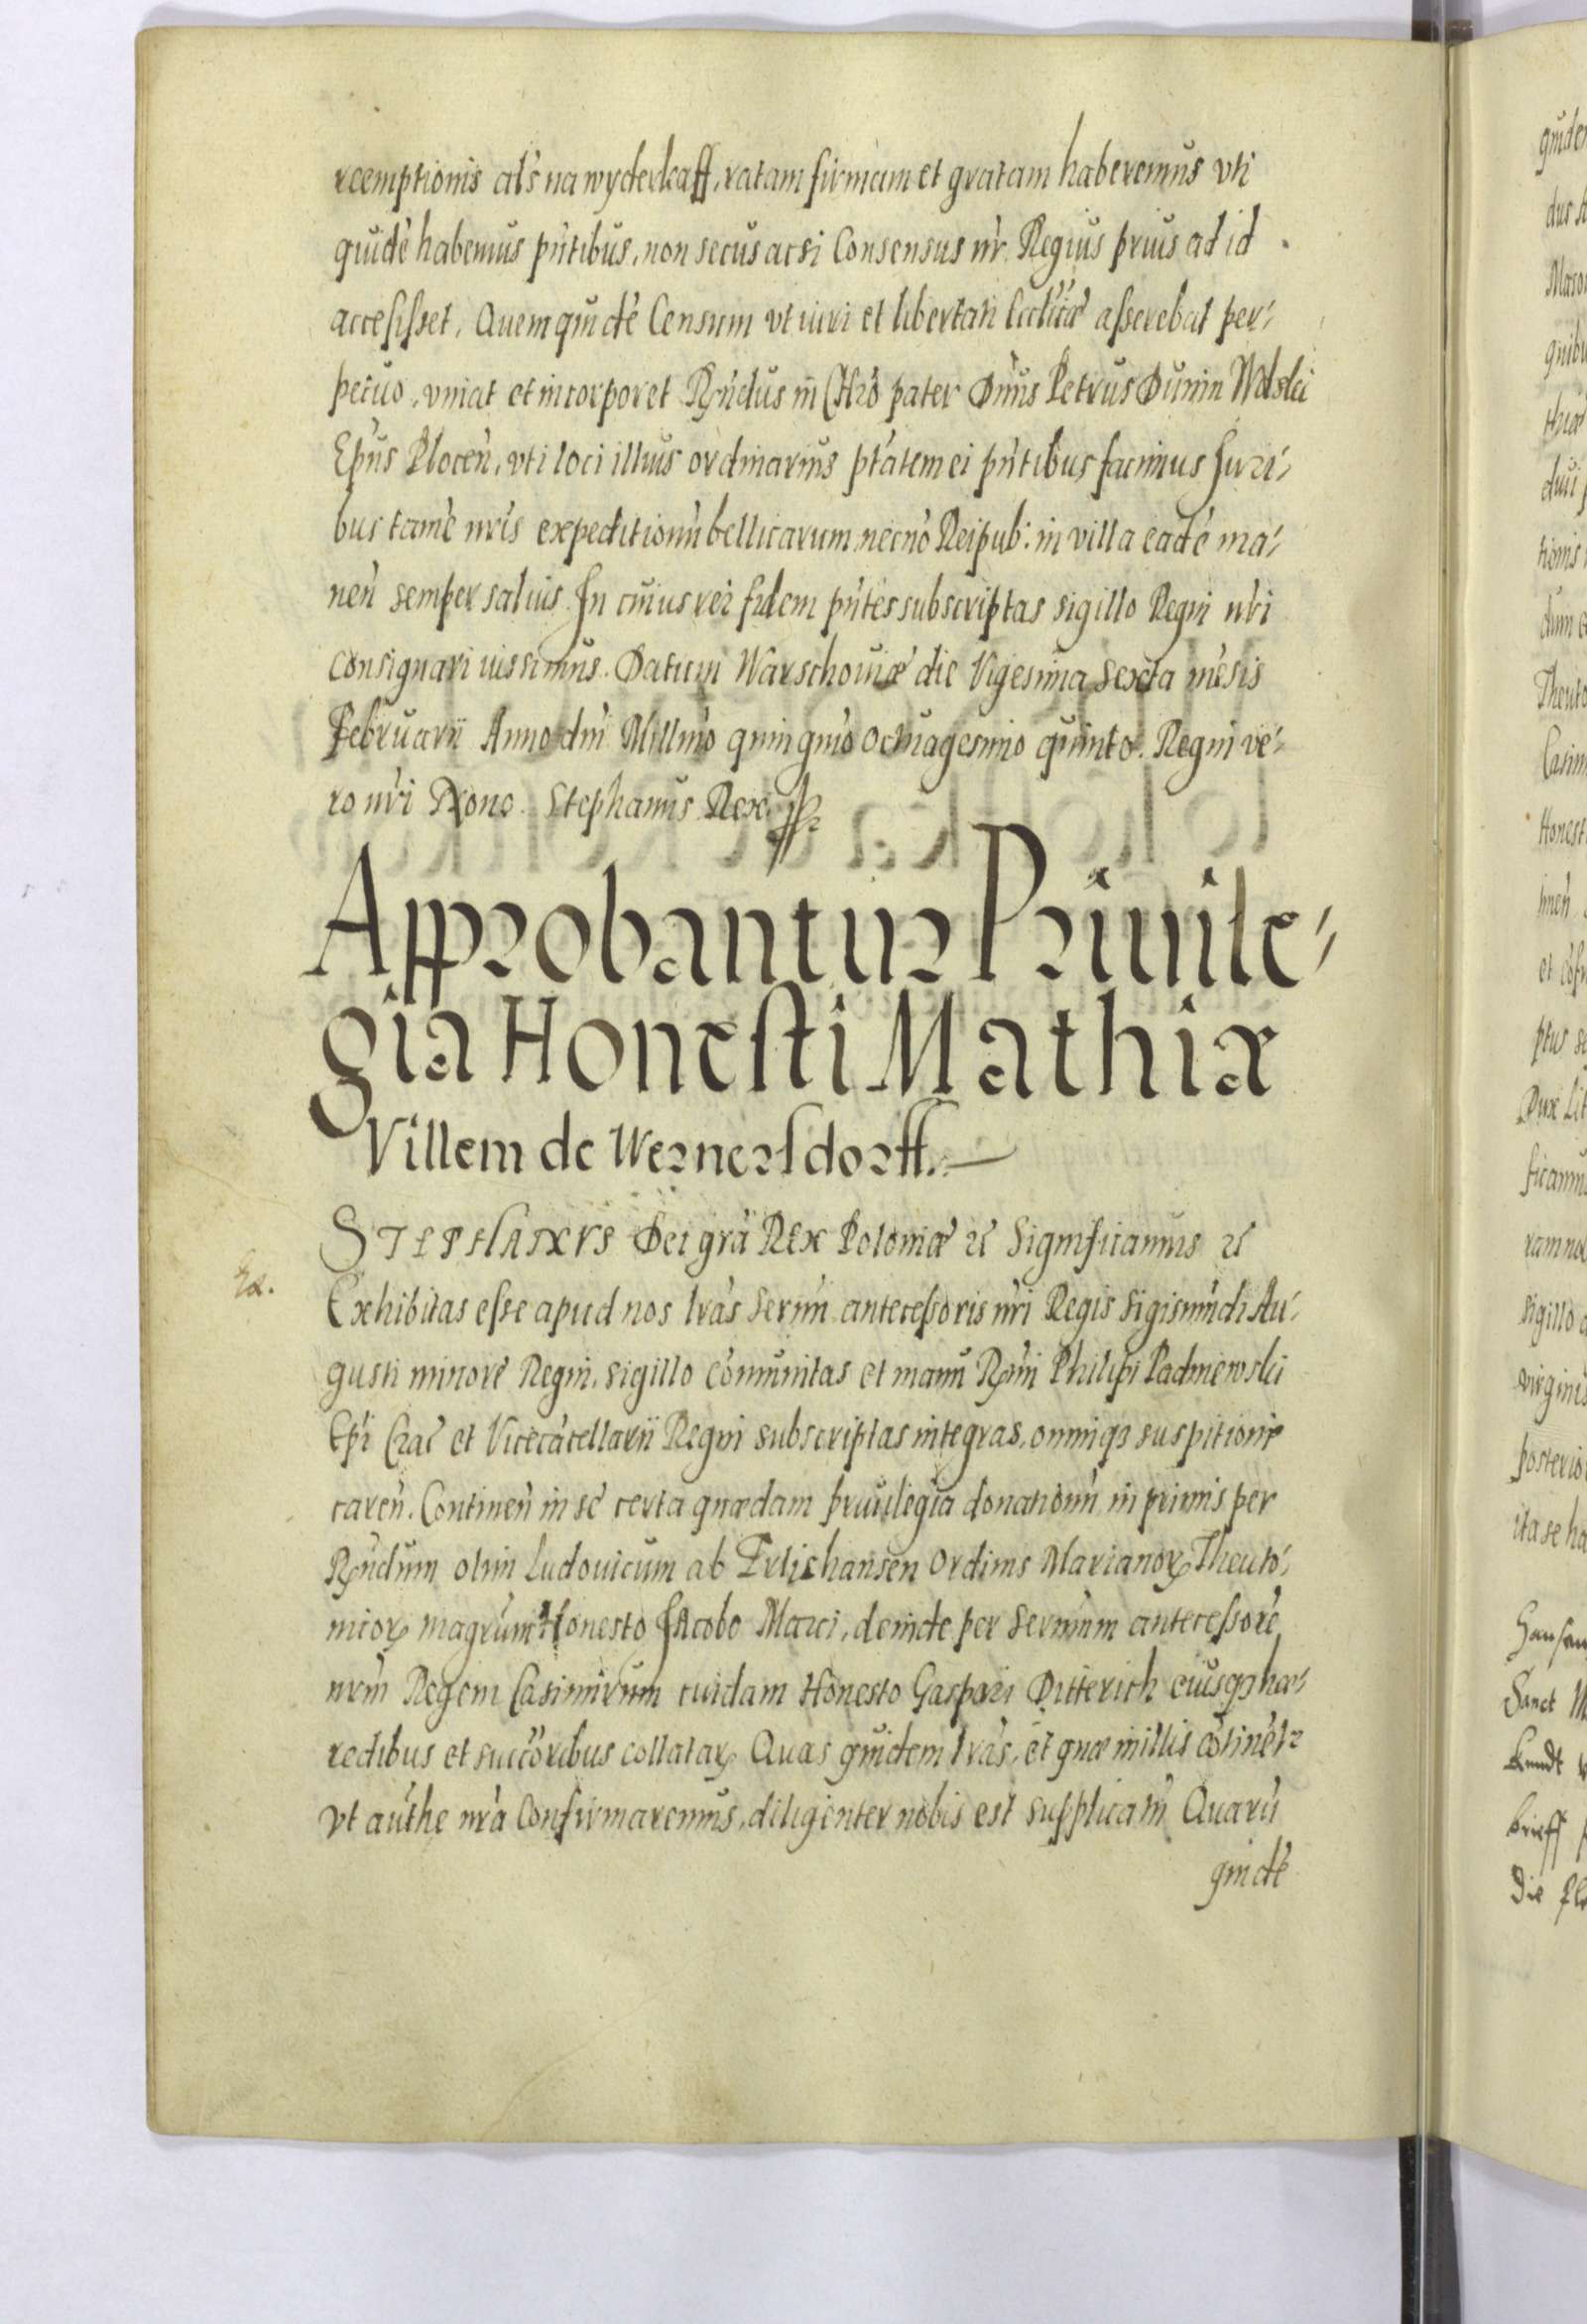 reemptionis als na wyderkaff, ratam firmam et gratam haberemus vti
quidẽ habemus pñtibus, non secus acsi Consensus nr̃ Regius prius ad id
accesisset, Quemquidẽ Censum vt iuri et libertati Ecclıcæ asserebat per-
petuo, vniat et incorporet Rn̄dus in Chrõ pater Dñus Petrus Dunin Wolski
Epũs Plocen̄, vti loci illius ordinarius ptãtem ei pñtibus facimus Juri-
bus tamẽ nr̃is expeditionũ bellicarum necnõ Reipub: in villa eadẽ ma-
nen̄ semper saluis. In cuius rei fidem pñtes subscriptas sigillo Regni nr̃i
consignari iussimus. Datum Warschouiæ die Vigesima sexta mẽsis
Februarii Anno dñi Millm̃o quingm̃o octuagesimo quinto. Regni ve-
ro nr̃i Nono. Stephanus Rex
Approbantur Priuile-
gia Honesti Mathiæ
Villem de Wernersdorff.
STEPHANVS Dei grã REX Poloniæ &c Significamus &c
Exhibitas esse apud nos lr̃as Sermi antecessoris nr̃i Regis Sigismũdi Au-
gusti minore Regni sigillo cõmunitas et manu Rm̃i Philipi Padniewski
Epĩ Crac̃ et Vicecãcellarii Regni subscriptas integras, omniq3 suspitione
caren̄. Continen̄ in sẽ certa quædam priuilegia donationũ in primis per
Rn̄dum olim Ludouicum ab Erlichansen Ordinis Marianor̃ Theuto-
nicor̃ magrũm Honesto Jacobo Marci, deinde per Sermum antecessorẽ
nrm̃ Regem Casimirum cuidam Honesto Gaspari Ditterich eiusq3 hæ-
redibus et succõribus collatar̃ Quas quidem lr̃as, et quæ in illis cõtinẽtr
vt authe nr̃a Confirmaremus, diligenter nobis est supplicatũ Quarũ
quidẽ